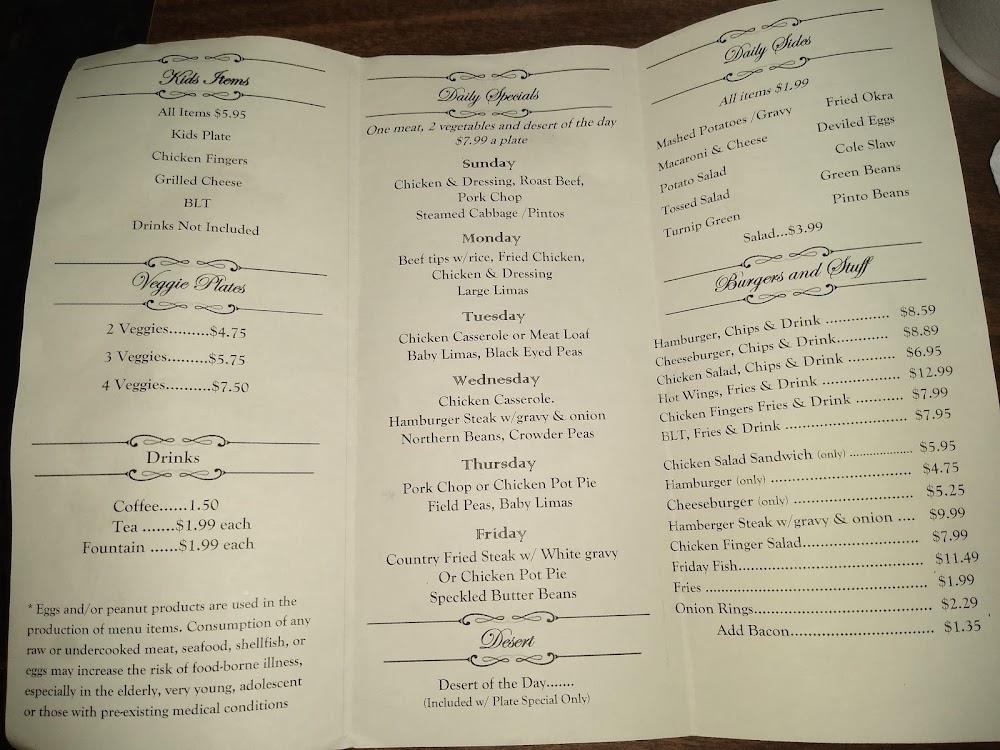 Kids Items
All Items $5.95
Kids Plate
Chicken Fingers
Grilled Cheese
BLT
Drinks Not Included
Veggie Plates
2 Veggies.........$4.75
3 Veggies.........$5.75
4 Veggies..........$7.50
Drinks
Coffee......1.50
Tea .......$1.99 each
Fountain ......$1.99 each
* Eggs and/or peanut products are used in the
production of menu items. Consumption of any
raw or undercooked meat, seafood, shellfish, or
eggs may increase the risk of food-borne illness,
especially in the elderly, very young, adolescent
or those with pre-existing medical conditions
Daily Specials
One meat, 2 vegetables and desert of the day
$7.99 a plate
Sunday
Chicken & Dressing, Roast Beef,
Pork Chop
Steamed Cabbage /Pintos
Monday
Beef tips w/rice, Fried Chicken,
Chicken & Dressing
Large Limas
Tuesday
Chicken Casserole or Meat Loaf
Baby Limas, Black Eyed Peas
Wednesday
Chicken Casserole.
Hamburger Steak w/gravy & onion
Northern Beans, Crowder Peas
Thursday
Pork Chop or Chicken Pot Pie
Field Peas, Baby Limas
Friday
Country Fried Steak w/ White gravy
Or Chicken Pot Pie
Speckled Butter Beans
Desert
Desert of the Day.......
(Included w/ Plate Special Only)
Daily Sides
All items $1.99
Mashed Potatoes /Gravy Fried Okra
Macaroni & Cheese Deviled Eggs
Potato Salad Cole Slaw
Tossed Salad Green Beans
Turnip Green Pinto Beans
Salad...$3.99
Burgers and Stuff
Hamburger, Chips & Drink ............... $8.59
Cheeseburger, Chips & Drink............ $8.89
Chicken Salad, Chips & Drink ........... $6.95
Hot Wings, Fries & Drink .................. $12.99
Chicken Fingers Fries & Drink ........... $7.99
BLT, Fries & Drink ............................ $7.95
Chicken Salad Sandwich (only) .................. $5.95
Hamburger (only) ................................. $4.75
Cheeseburger (only) ............................ $5.25
Hamberger Steak w/gravy & onion .... $9.99
Chicken Finger Salad............................ $7.99
Friday Fish........................................... $11.49
Fries .................................................... $1.99
Onion Rings.......................................... $2.29
Add Bacon................................. $1.35